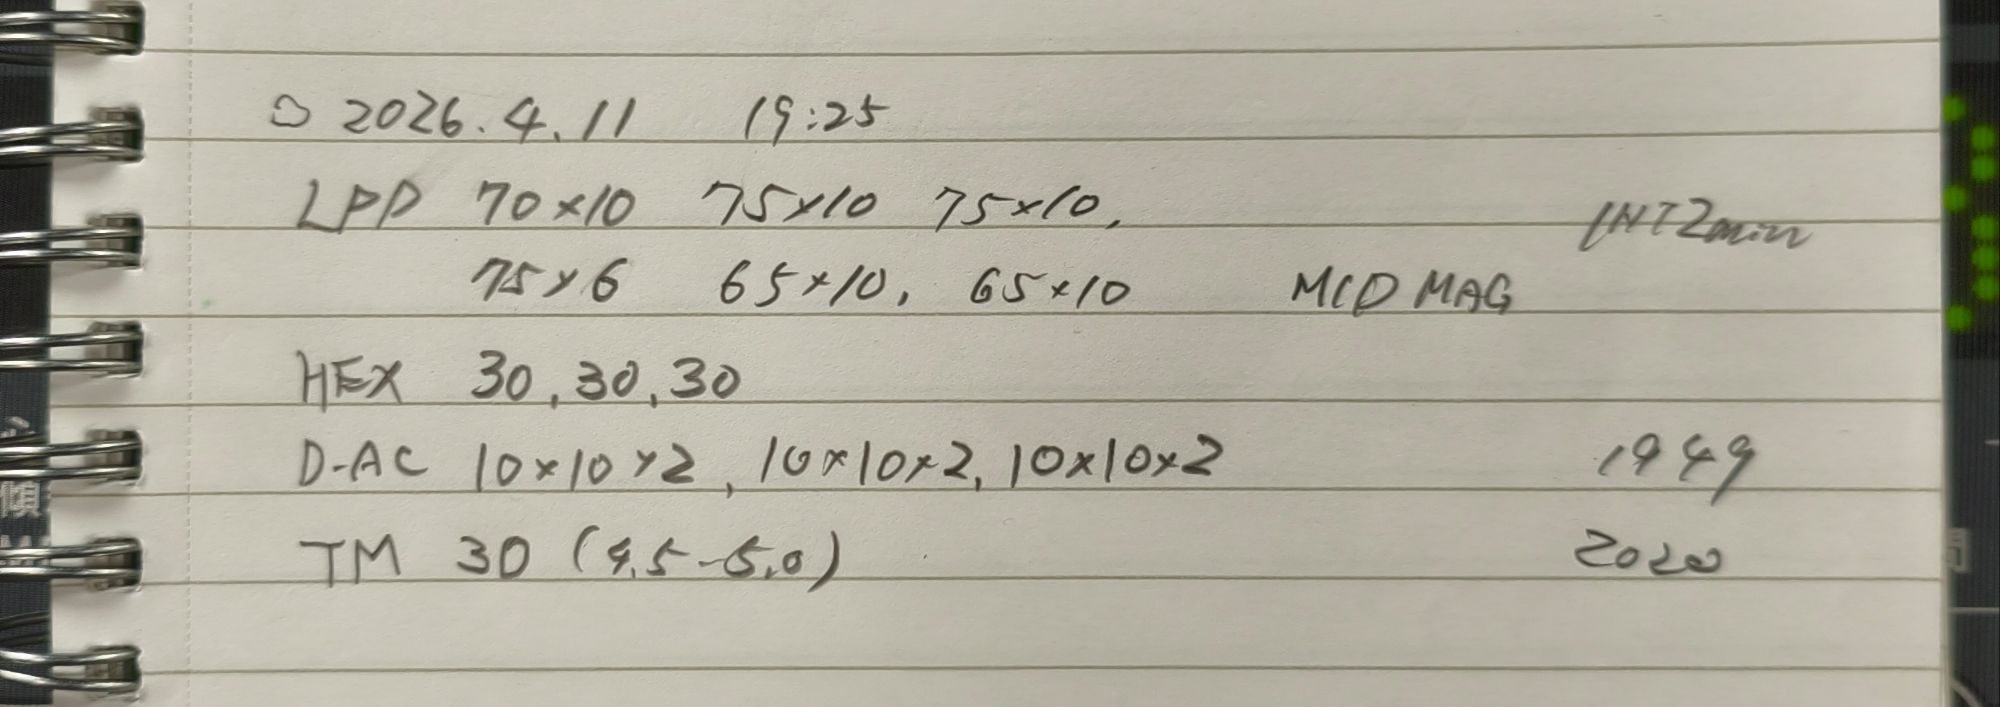 □ 2026.4.11 19:25
LPD 70×10 75×10 75×10, INT2min
75×6 65×10, 65×10 MCD MAG
HEX 30, 30, 30
D-AC 10×10×2, 10×10×2, 10×10×2 1949
TM 30 (4.5-5.0) 2020
傾